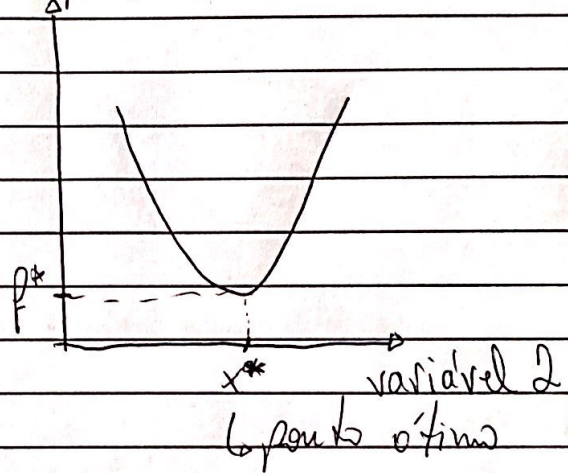 f*
x* variável 2
↳ ponto ótimo